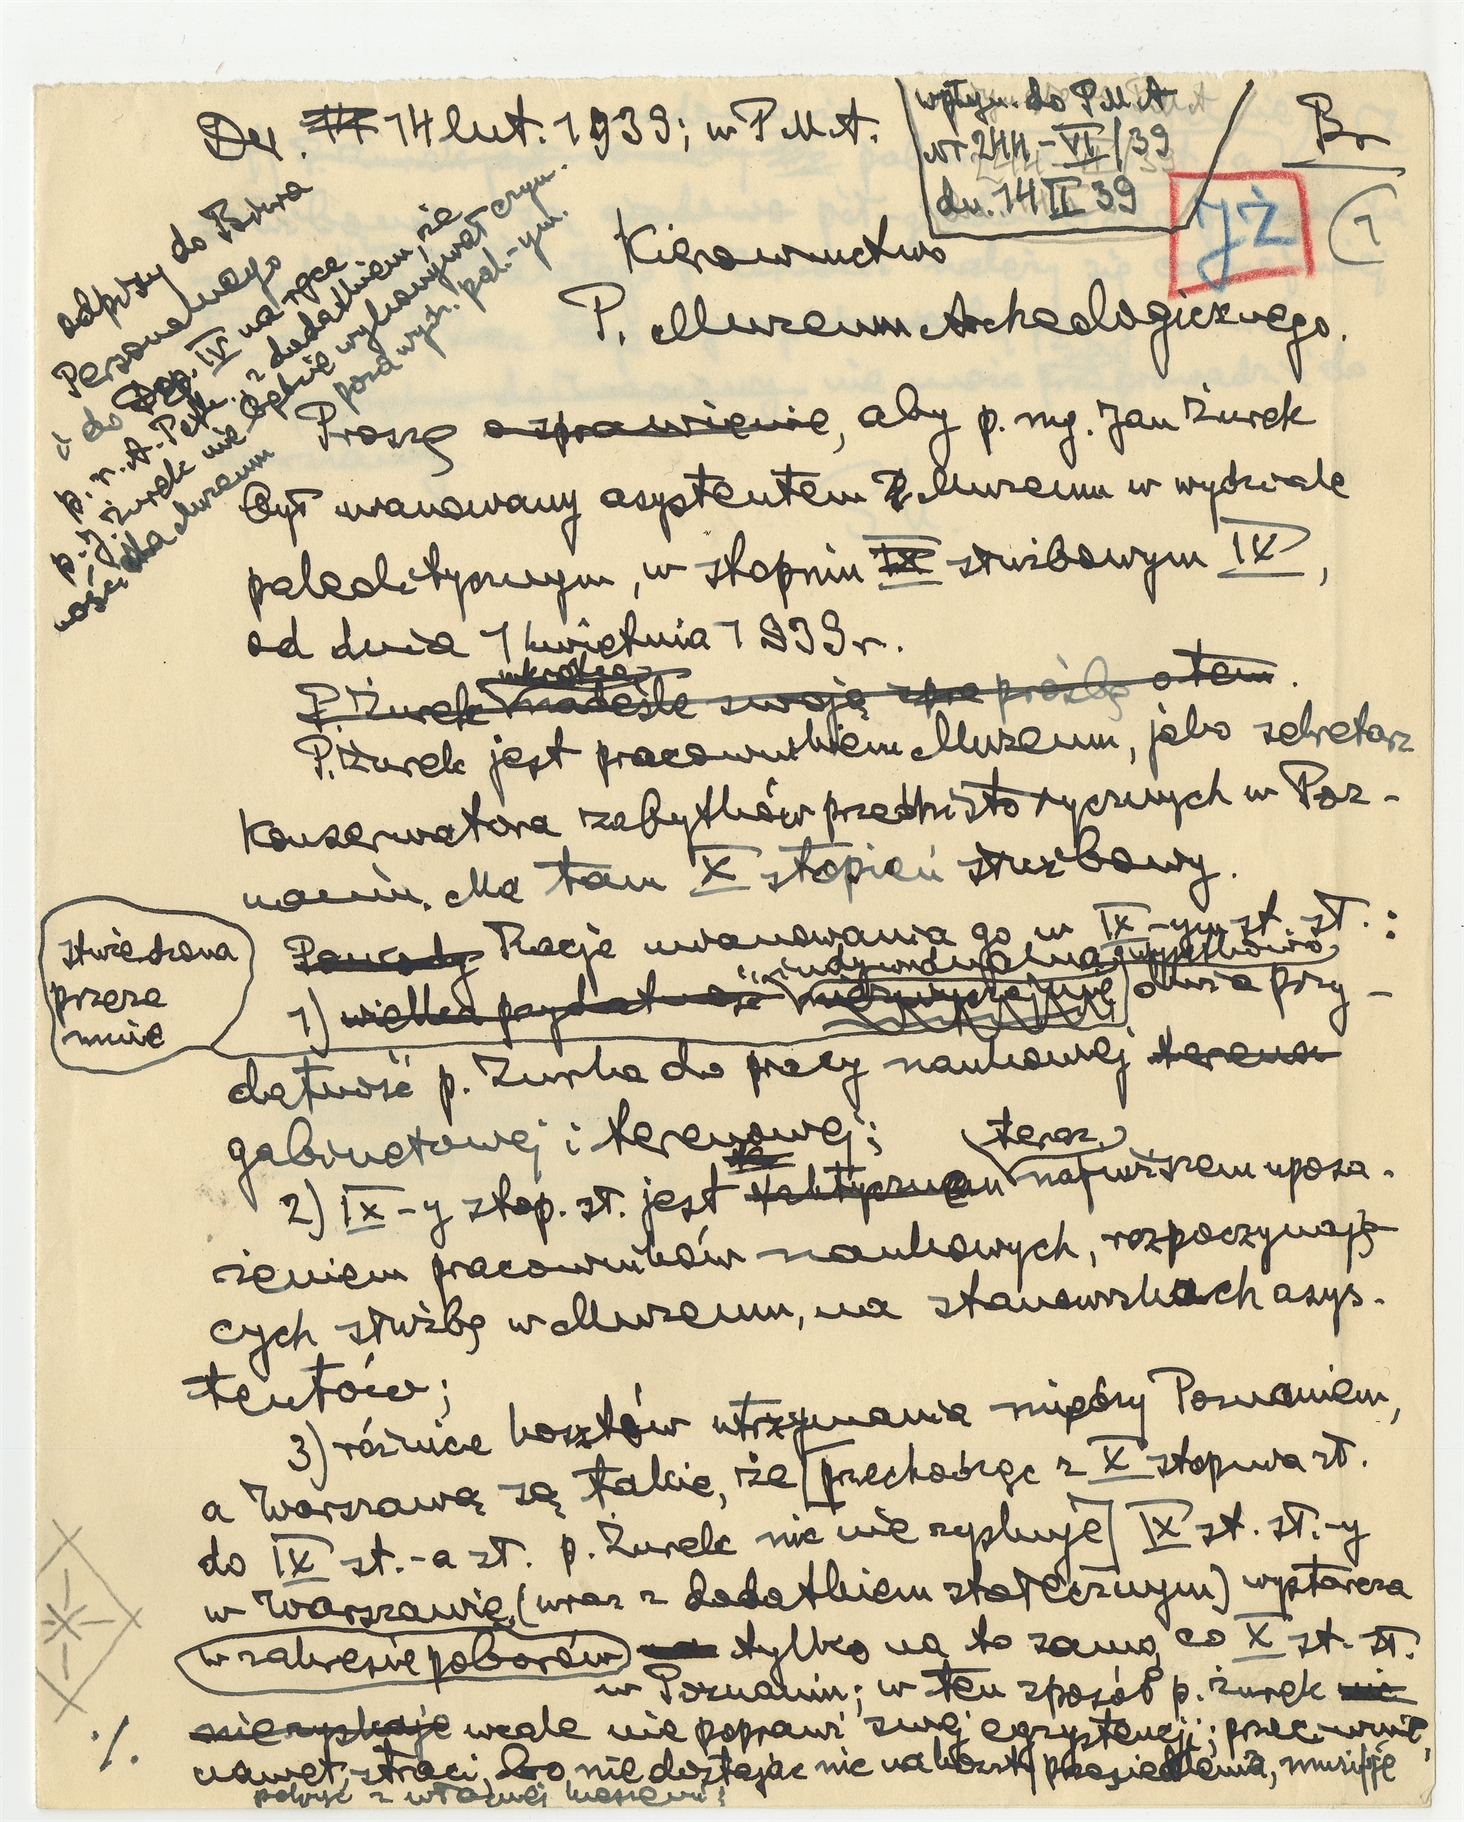 Dn. 14 lut. 1939; w P.M.A.
wpłyn. do P.M.A
nr 244-VI/39
dn. 14 II 39
Br
JŻ
1
Kierownictwo
P. Muzeum Archeologicznego.
odpisy do Biura
Personalnego
i do Dep. IV na ręce
p. r. A. Pełk. z dodatkiem, że
p. J. Żurek nie będzie wykonywał czyn-
ności dla Muzeum
poza wydz. pal.-ym.
Proszę o sprawienie, aby p. mg. Jan Żurek
był mianowany asystentem Muzeum w wydziale
paleolitycznym, w stopniu IX służbowym IX,
od dnia 1 kwietnia 1939 r.
wkrótce
P. Żurek nadeśle swoją prośbę o tem.
P. Żurek jest pracownikiem Muzeum, jako sekretarz
Konserwatora zabytków przedhistorycznych w Poz-
naniu. Ma tam X stopień służbowy.
Powody Racje mianowania go w IX-ym st. sł.:
stwierdzona
przeze
mnie
indywidualna, wyjątkowa
1) wielka przydatność nadzwyczajna przy-
datność p. Żurka do pracy naukowej
gabinetowej i terenowej;
teraz
2) IX-y stop. sł. jest najniższem uposa-
żeniem pracowników naukowych, rozpoczynają-
cych służbę w Muzeum, na stanowiskach asys-
tentów;
3) różnice kosztów utrzymania między Poznaniem,
a Warszawą są takie, że przechodząc z X stopnia sł.
do IX st.-a sł. p. Żurek nic nie zyskuje IX st. sł.-y
w Warszawie, (wraz z dodatkiem stołecznym) wystarcza
w zakresie poborów tylko na to samo, co X st. sł.
w Poznaniu; w ten sposób p. Żurek nic
nie zyskuje wcale nie poprawi swej egzystencji; przeciwnie,
nawet straci, bo nie dostając nic na koszty przesiedlenia, musi je
pokryć z własnej kieszeni;
./.